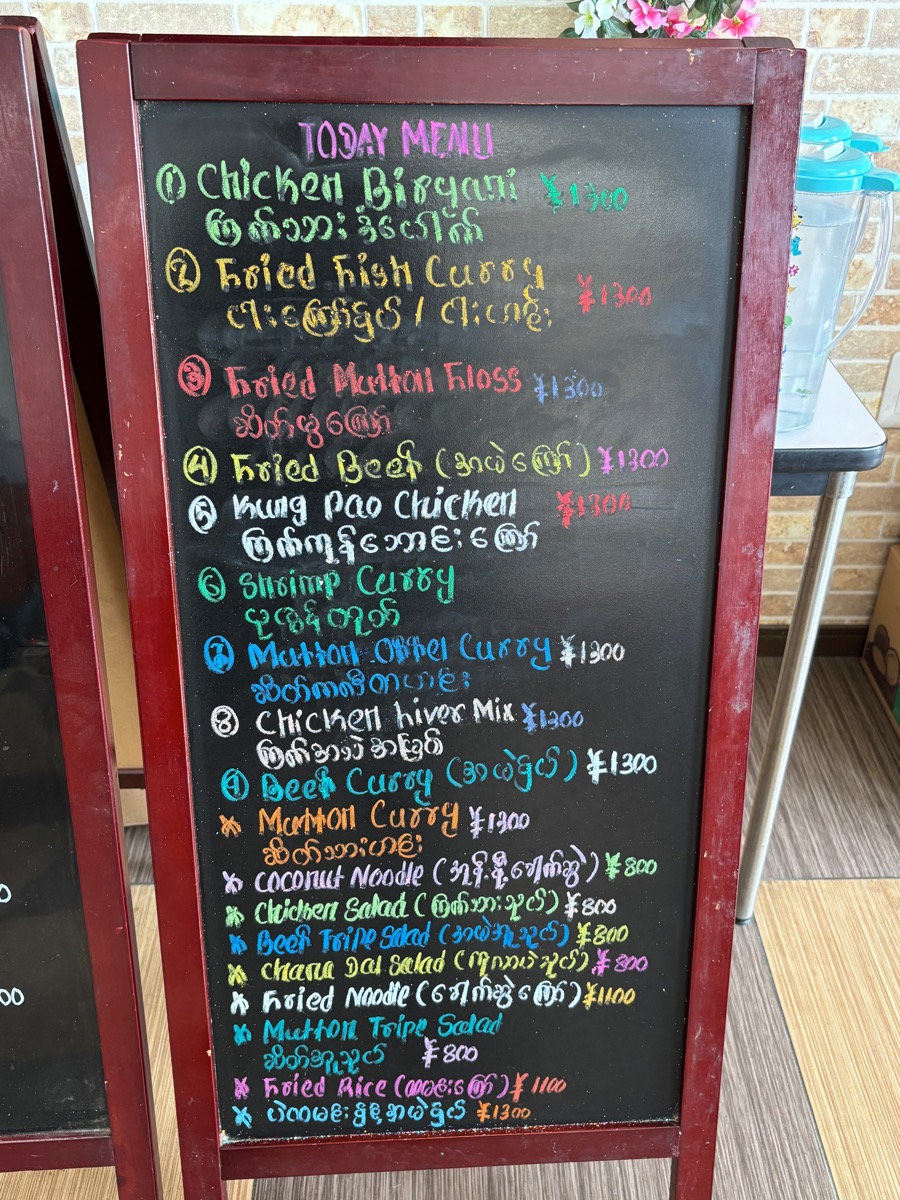 TODAY MENU
① Chicken Biryani ¥1300
ကြက်သားဒံပေါက်
② Fried Fish Curry ¥1300
ငါးကြော်နှပ် / ငါးဟင်း
③ Fried Mutton Floss ¥1300
ဆိတ်မွှကြော်
④ Fried Beef (အမဲကြော်) ¥1300
⑤ Kung Pao Chicken ¥1300
ကြက်ကုန်းဘောင်းကြော်
⑥ Shrimp Curry
ပုဇွန်
⑦ Mutton Offel Curry ¥1300
ဆိတ်ကလီစာဟင်း
⑧ Chicken Liver Mix ¥1300
ကြက်အသဲအမြစ်
⑨ Beef Curry (အမဲနှပ်) ¥1300
* Mutton Curry ¥1300
ဆိတ်သားဟင်း
* Coconut Noodle (အုန်းနို့ခေါက်ဆွဲ) ¥800
* Chicken Salad (ကြက်သားသုပ်) ¥800
* Beef Tripe Salad (အမဲအူသုပ်) ¥800
* Chana Dal Salad (ကုလားပဲသုပ်) ¥800
* Fried Noodle (ခေါက်ဆွဲကြော်) ¥1100
* Mutton Tripe Salad
ဆိတ်အူသုပ် ¥800
* Fried Rice (ထမင်းကြော်) ¥1100
* ပဲထမင်းနှင့်အမဲနှပ် ¥1300
00